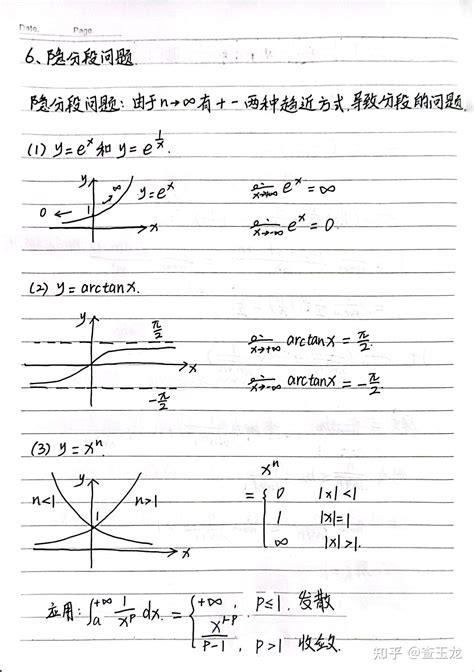 Date. Page
6、隐分段问题
隐分段问题：由于n→∞有+-两种趋近方式,导致分段的问题.
(1) y=e^x 和 y=e^{1/x}.
y
∞
y=e^x
0 ←
1
x
x→+∞ e^x = ∞
x→-∞ e^x = 0.
(2) y=arctanx.
y
π/2
x
-π/2
x→+∞ arctanx = π/2.
x→-∞ arctanx = -π/2
(3) y=x^n
y
n<1
n>1
1
x
x^n
= { 0 |x|<1
1 |x|=1
∞ |x|>1.
应用: ∫_a^{+∞} 1/x^p dx. = { +∞, p≤1. 发散
x^{1-p}/(p-1), p>1 收敛
知乎 @查玉龙